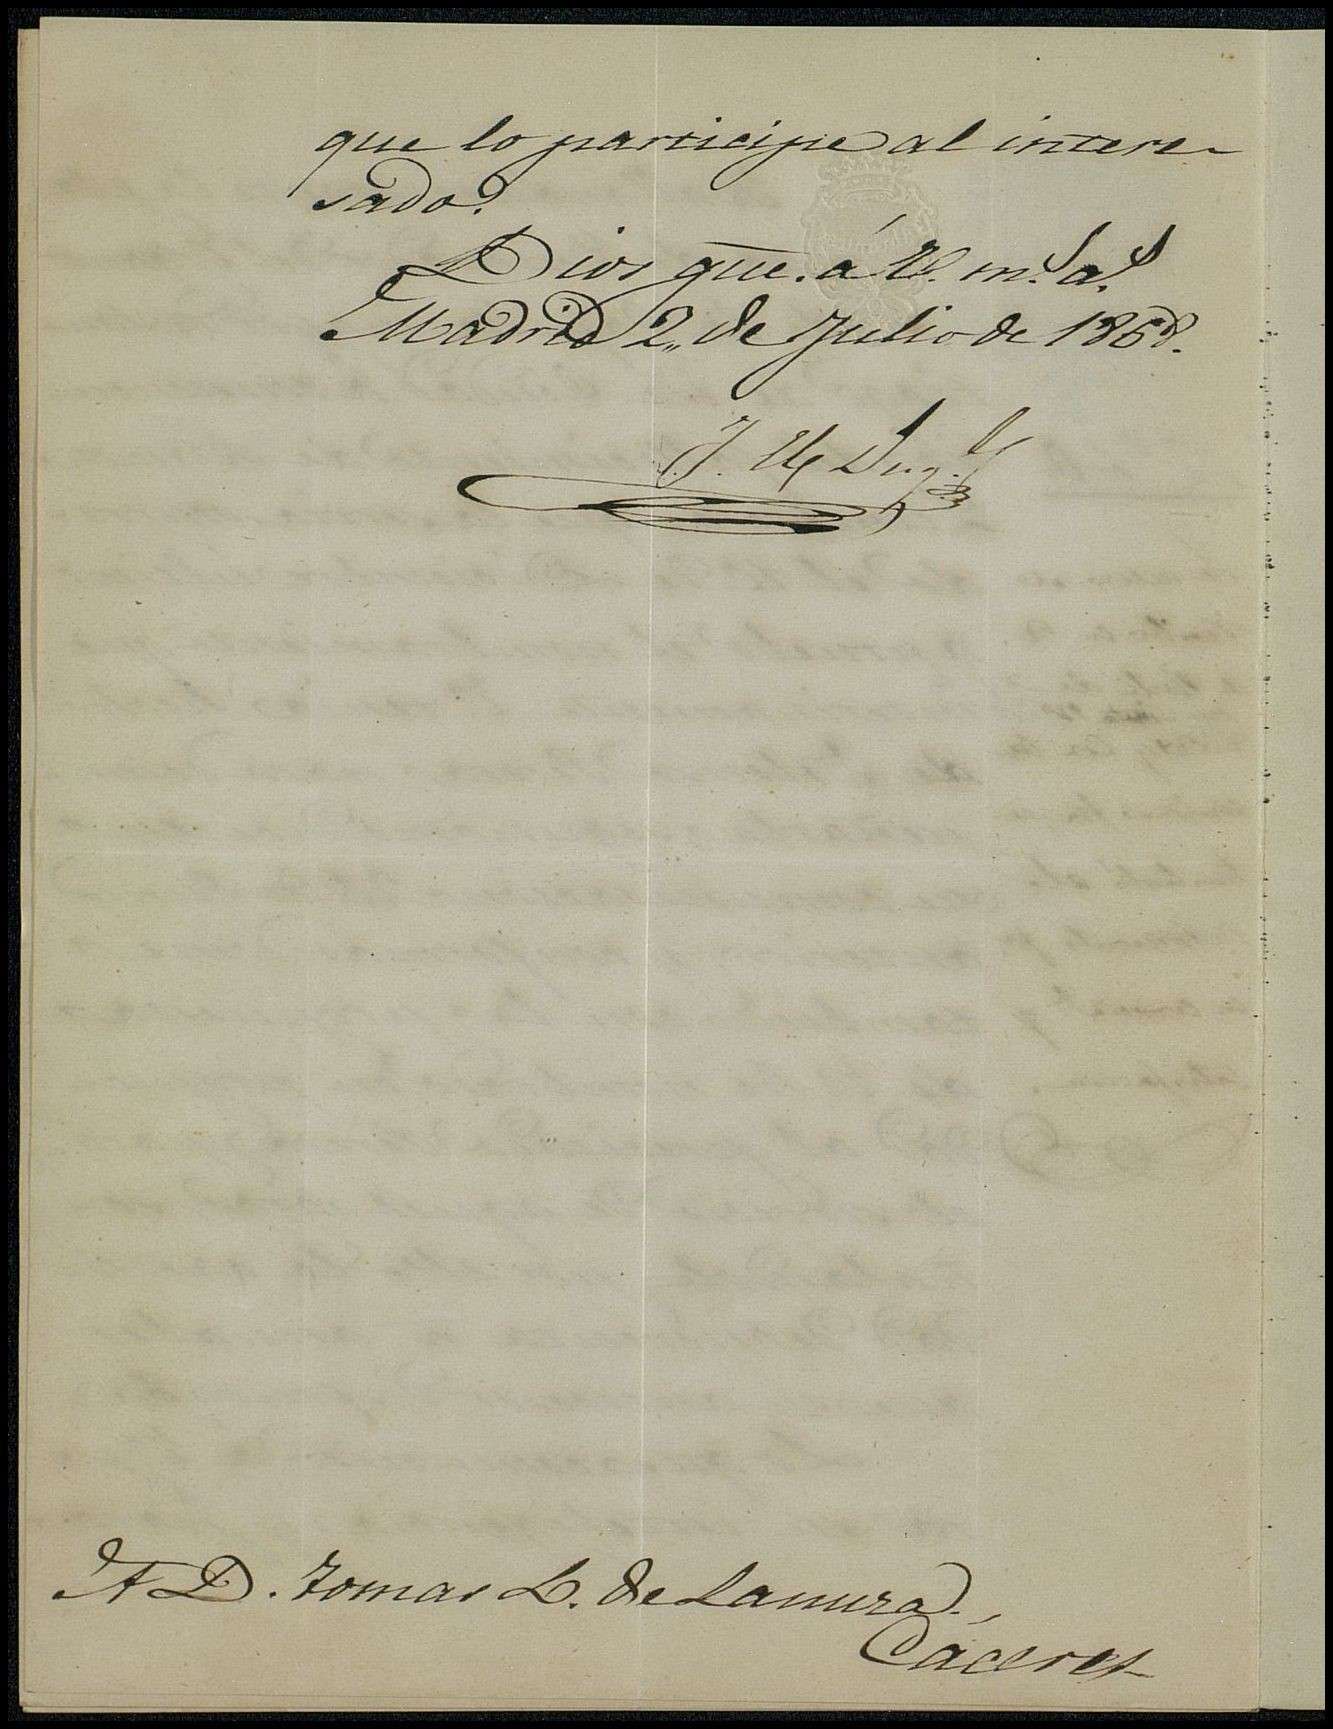 que lo participe al intere-
sado.
Dios gue. á V. m.s a.s
Madrid 2,, de Julio de 1868.
A D. Tomas L. de Lanuza.,
Cáceres